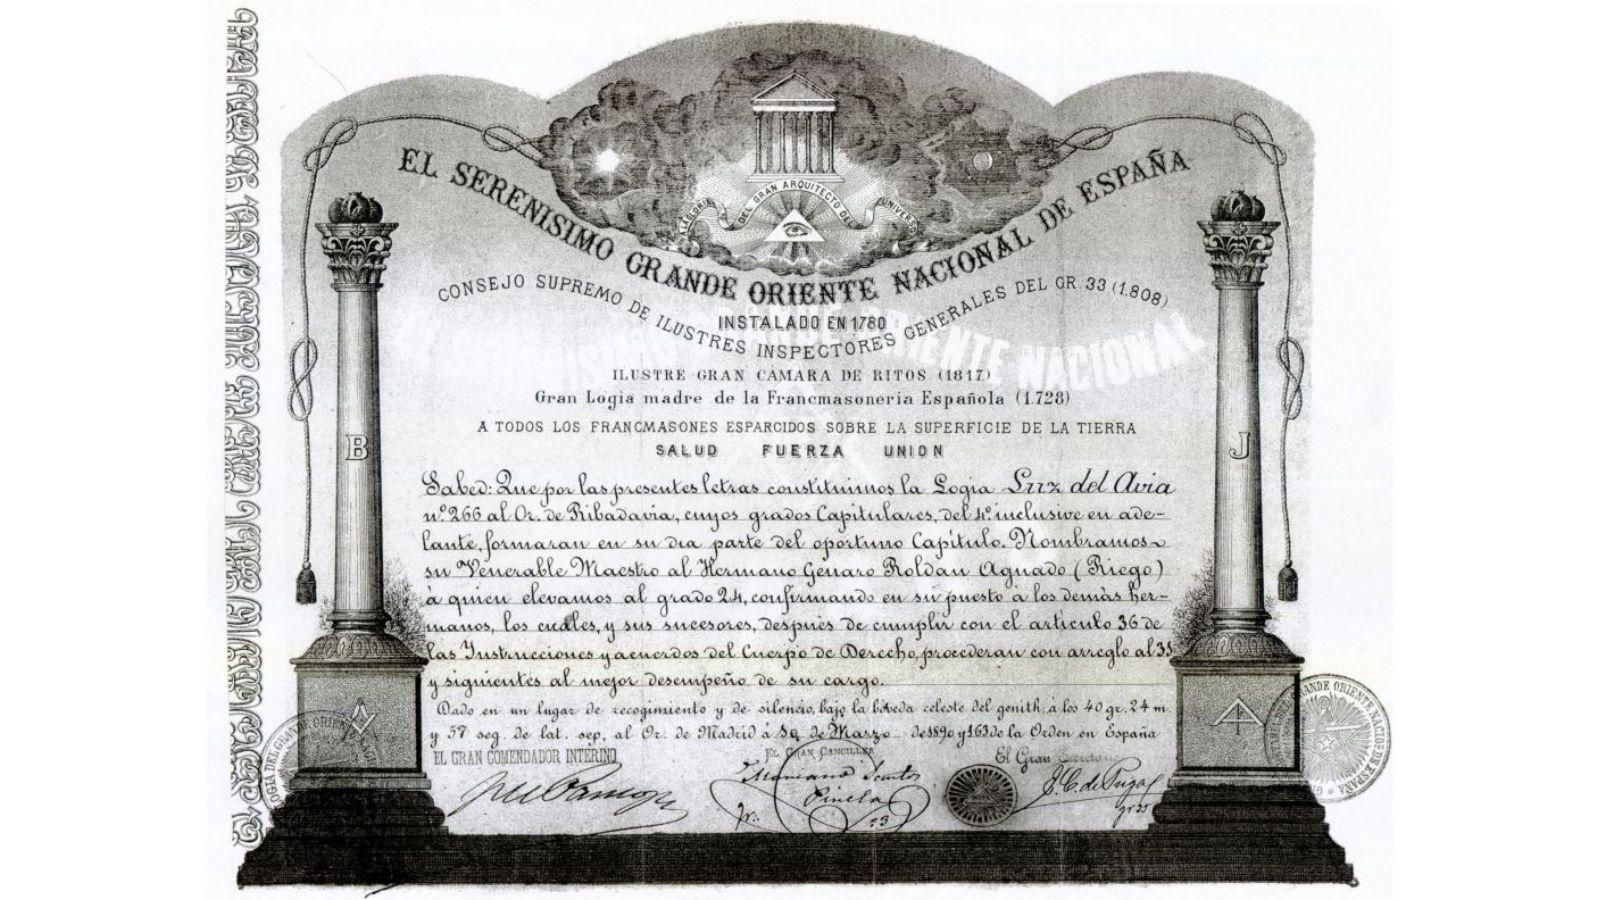 ALEGORIA DEL GRAN ARQUITECTO DEL UNIVERSO
EL SERENISIMO GRANDE ORIENTE NACIONAL DE ESPAÑA
CONSEJO SUPREMO DE ILUSTRES INSPECTORES GENERALES DEL GR. 33 (1.808)
INSTALADO EN 1780
ILUSTRE GRAN CÁMARA DE RITOS (1817)
Gran Logia madre de la Francmasoneria Española (1.728)
A TODOS LOS FRANCMASONES ESPARCIDOS SOBRE LA SUPERFICIE DE LA TIERRA
SALUD FUERZA UNION
B
J
Sabed: Que por las presentes letras constituimos la Logia Luz del Avia
nº 266 al Or. de Ribadavia, cuyos grados Capitulares, del 4º inclusive en ade-
lante, formaran en su dia parte del oportuno Capítulo. Nombramos
su Venerable Maestro al Hermano Genaro Roldan Aguado (Riego)
á quien elevamos al grado 24, confirmando en su puesto á los demás her-
manos, los cuales, y sus sucesores, después de cumplir con el artículo 36 de
las Instrucciones y acuerdos del Cuerpo de Derecho, procederan con arreglo al 35
y siguientes al mejor desempeño de su cargo.
Dado en un lugar de recogimiento y de silencio, bajo la bóveda celeste del zenith, á los 40 gr. 24 m.
y 57 seg. de lat. sep, al Or. de Madrid á de Marzo de 1890 y 163 de la Orden en España
EL GRAN COMENDADOR INTERINO
EL GRAN CANCILLER
El Gran Secretario
Mariano Santos
Pinela
J. C. de Puga
gr 33
33